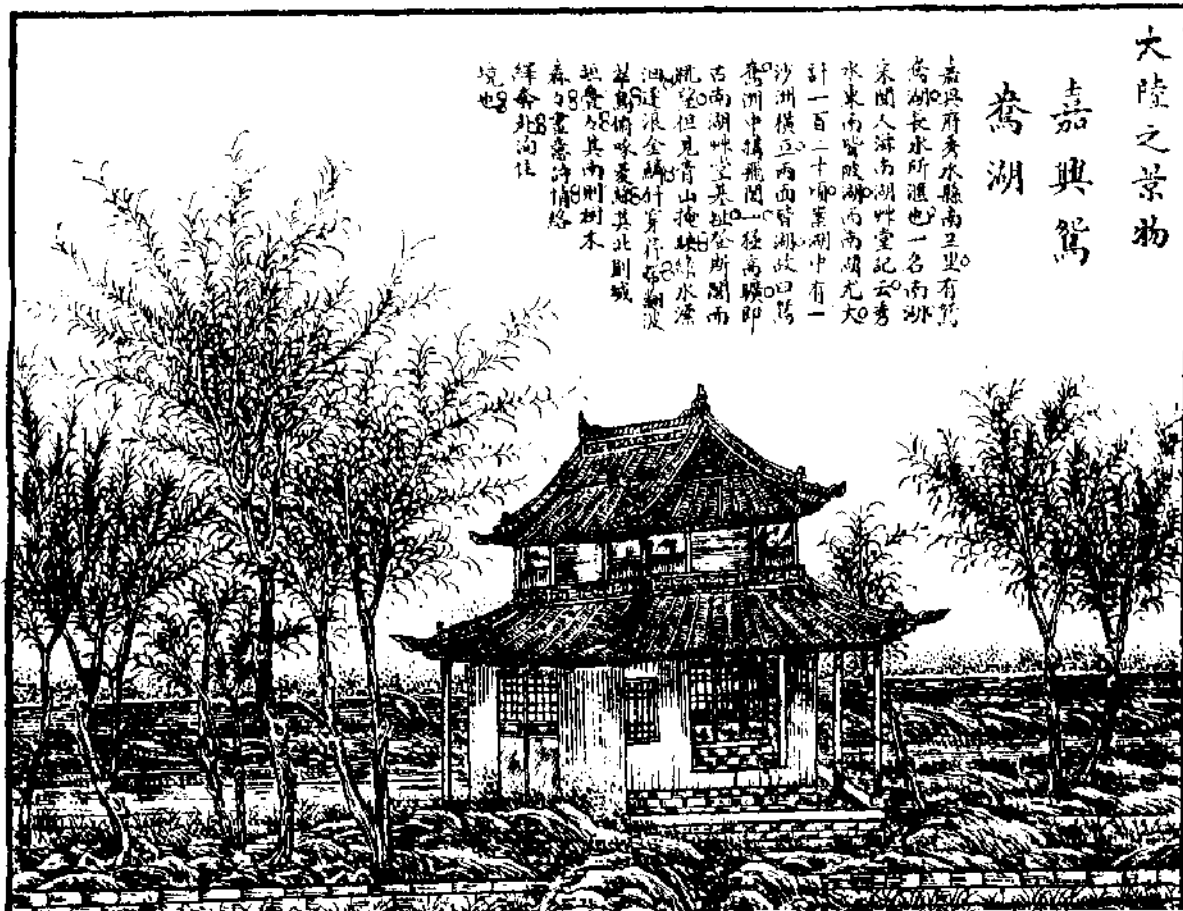 大陸之景物
嘉興鴛
鴦湖
嘉興府秀水縣南三里有鴛
鴦湖長水所滙也一名南湖
宋聞人滋南湖艸堂記云秀
水東南皆陂湖而南湖尤大
計一百二十頃葉湖中有一
沙洲橫亙兩面皆湖故曰鴛
鴦洲中搆飛閣一極高曠即
古南湖艸堂基址登斯閣而
眺望但見青山掩映綠水漂
洄逢浪金鱗什穿行翻波
翠鳥俯啄菱其北則城
垣疊疊其南則樹木
森森畫意詩情絡
繹奔赴洵佳
境也